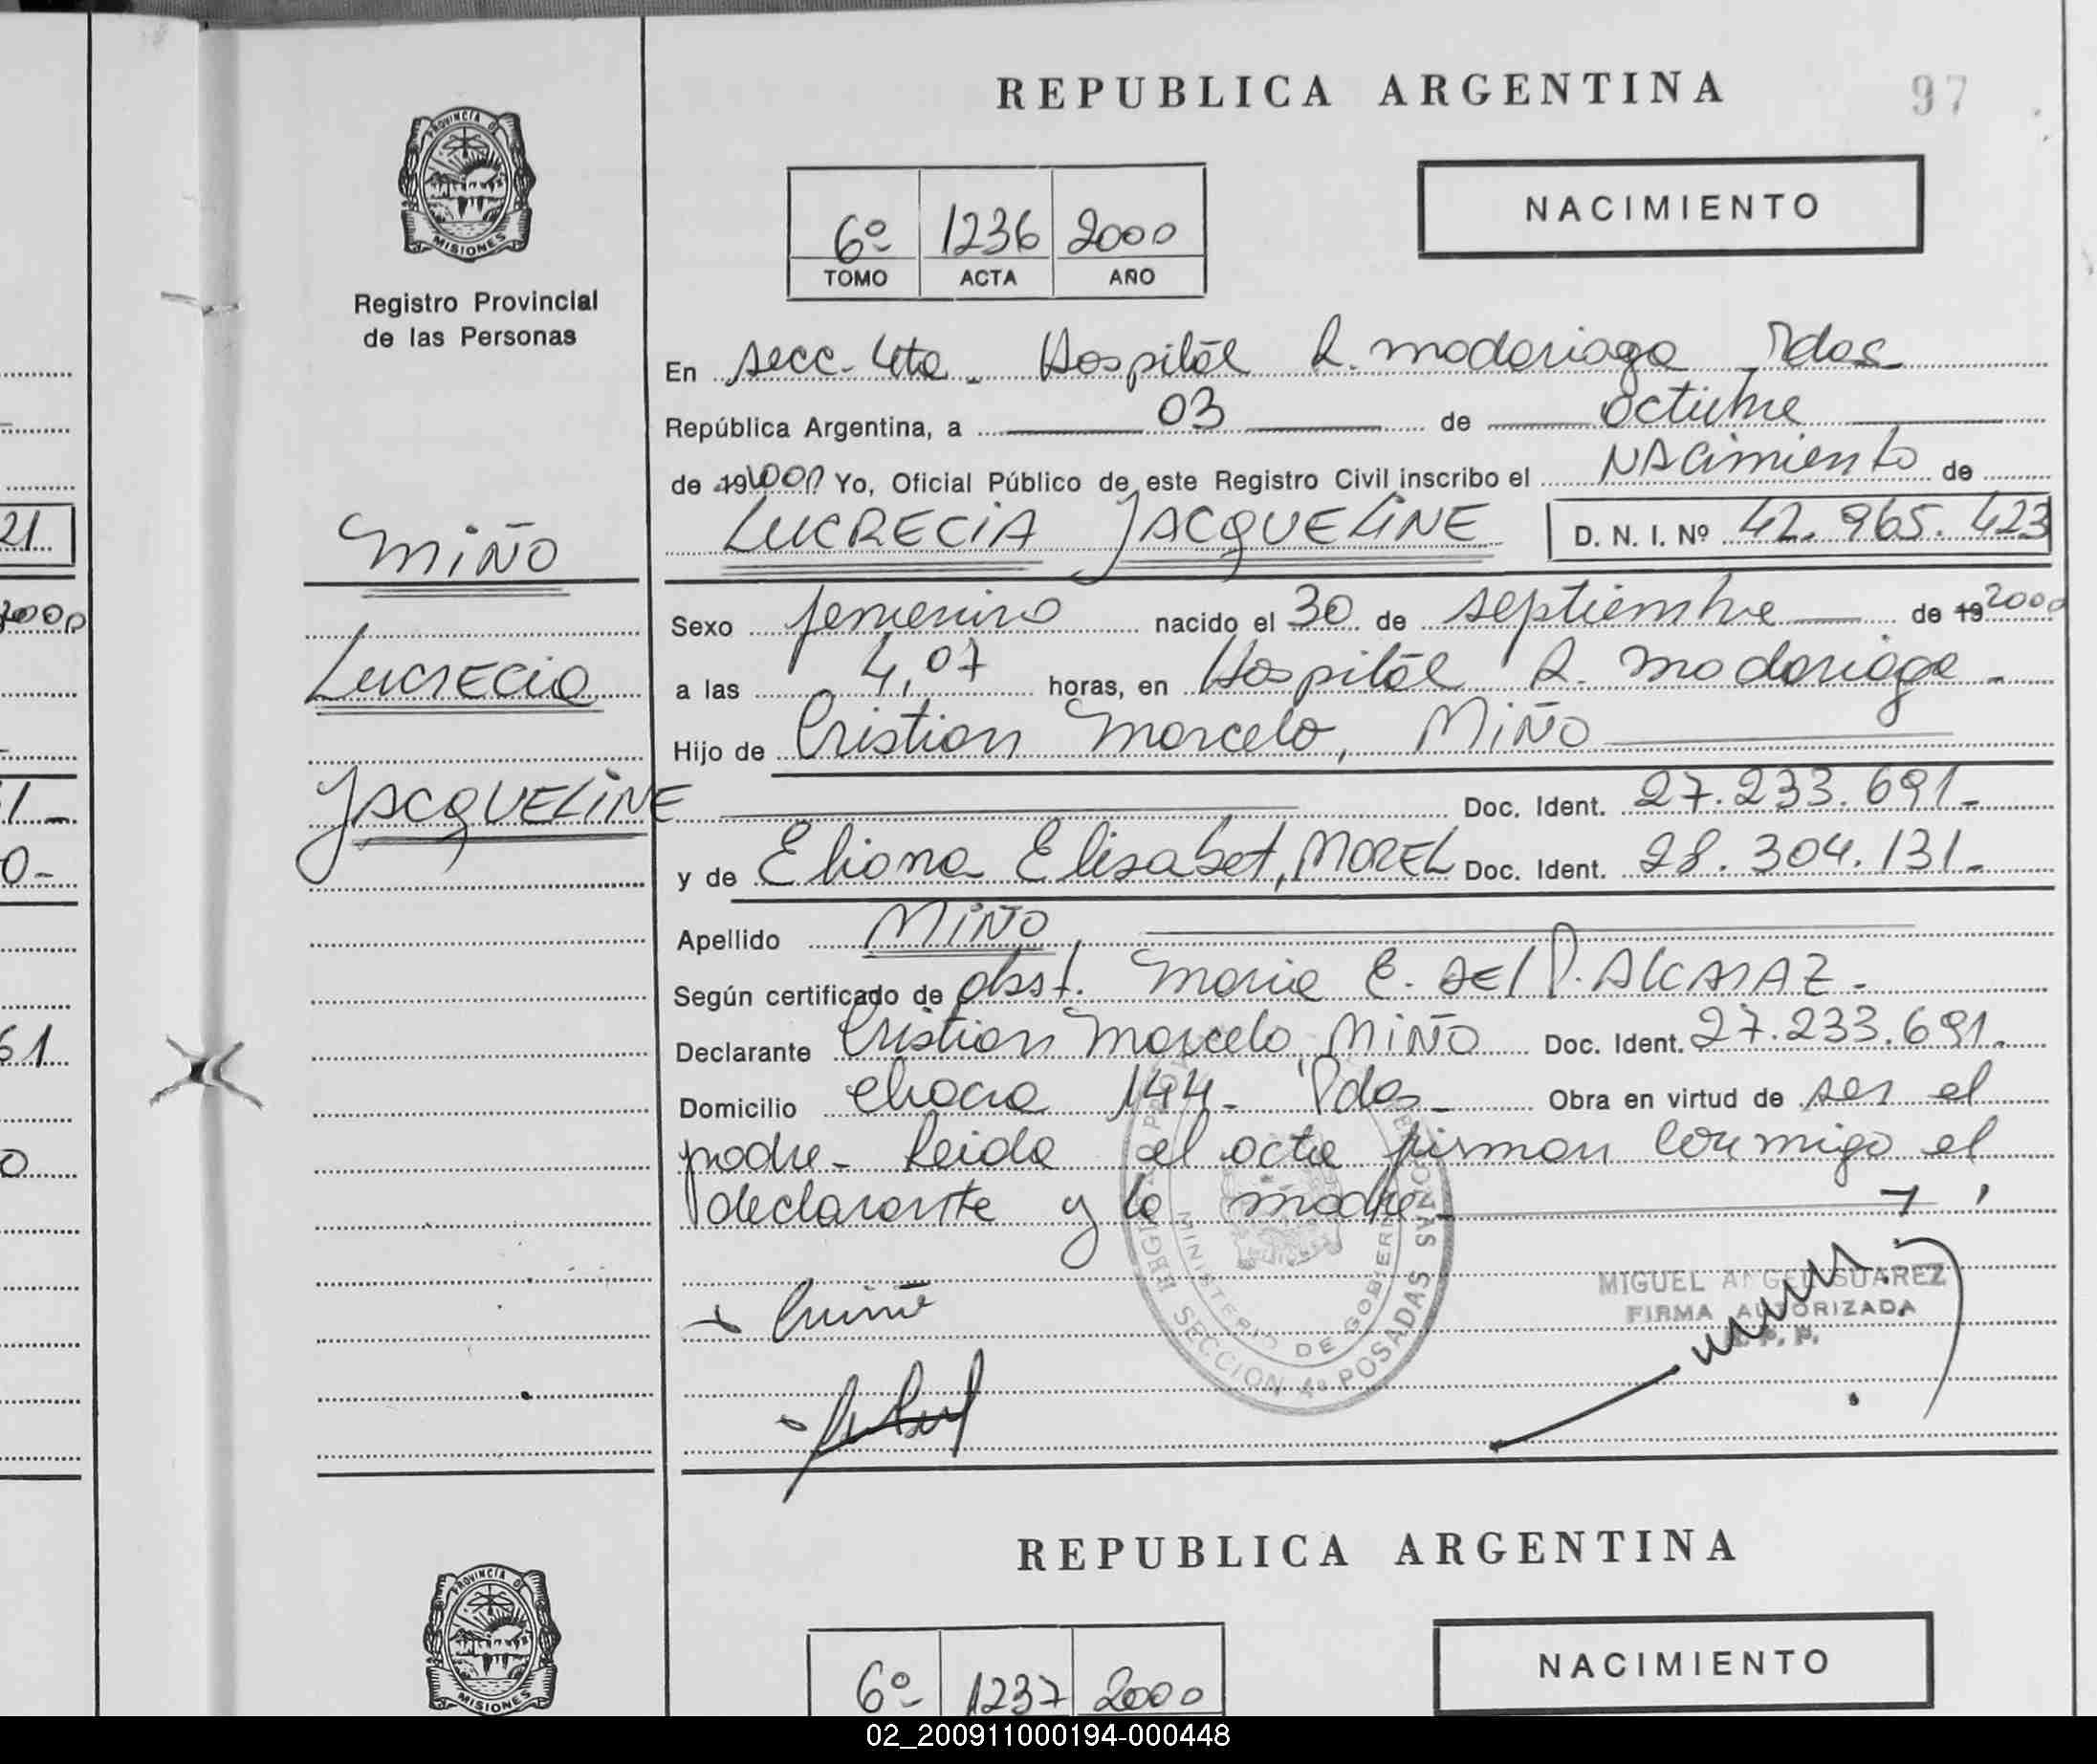 REPUBLICA ARGENTINA
97
PROVINCIA DE
MISIONES
Registro Provincial
de las Personas
6º 1236 2000
TOMO ACTA AÑO
NACIMIENTO
En secc. 4ta - Hospital R. Madariaga Pdas
República Argentina, a 03 de octubre
de 19 Yo, Oficial Público de este Registro Civil inscribo el NACimiento de
LUCRECIA JACQUELINE D. N. I. Nº 42.965.423
Sexo femenino nacido el 30 de septiembre de 19 2000
a las 4,07 horas, en Hospital R. Madariaga -
Hijo de Cristian Marcelo, MIÑO
Doc. Ident. 27.233.691-
y de Eliana Elisabet, MOREL Doc. Ident. 28.304.131-
Apellido MIÑO
Según certificado de obst. Maria E. DEL P. ALCARAZ -
Declarante Cristian Marcelo MIÑO Doc. Ident. 27.233.691.
Domicilio chacra 144 - Pdas - Obra en virtud de ser el
padre - Leida el acta firman conmigo el
declarante y la madre -
MIÑO
Lucrecia
JACQUELINE
MINISTERIO DE GOBIERNO
SECCION 4ª POSADAS
MIGUEL ANGEL SUAREZ
FIRMA AUTORIZADA
21
2000
1-
0-
61
0
REPUBLICA ARGENTINA
PROVINCIA DE
MISIONES
6º 1237 2000
NACIMIENTO
02_200911000194-000448